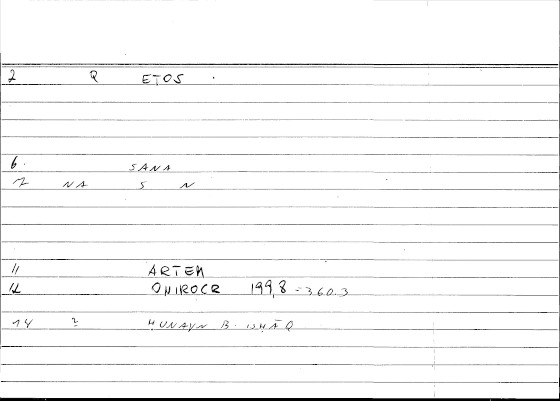 2 Q ETOS .
6. SANA
7 NA S N
11 ARTEM
12 ONIROCR 199,8 = 360.3
14 2 HUNAYN B. ISḤĀQ